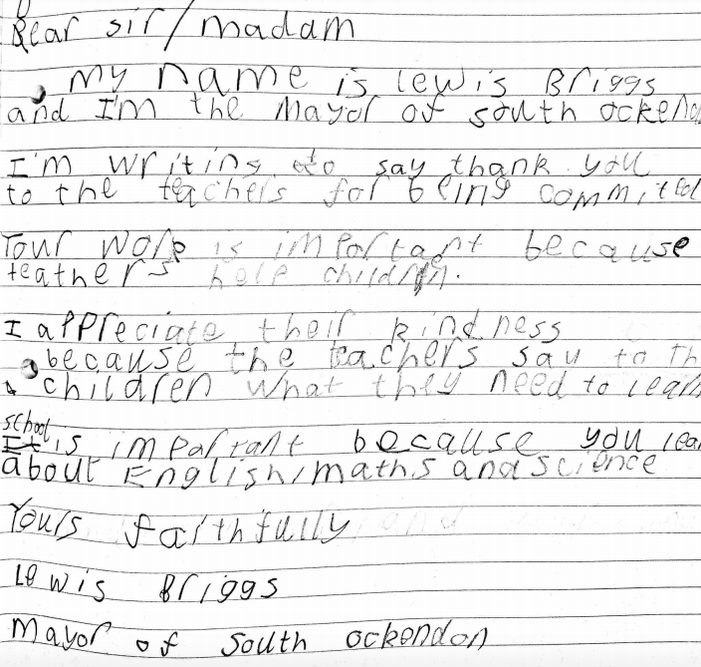 Dear sir/madam
My name is lewis Briggs
and I'm the Mayor of south ockendo
I'm writing to say thank you
to the teachers for being committed
Your work is important because
teathers help children.
I appreciate their kindness
because the teachers say to th
children what they need to learn
school
It is important because you lea
about English/maths and science
Yours faithfully
Lewis Briggs
Mayor of South ockendon